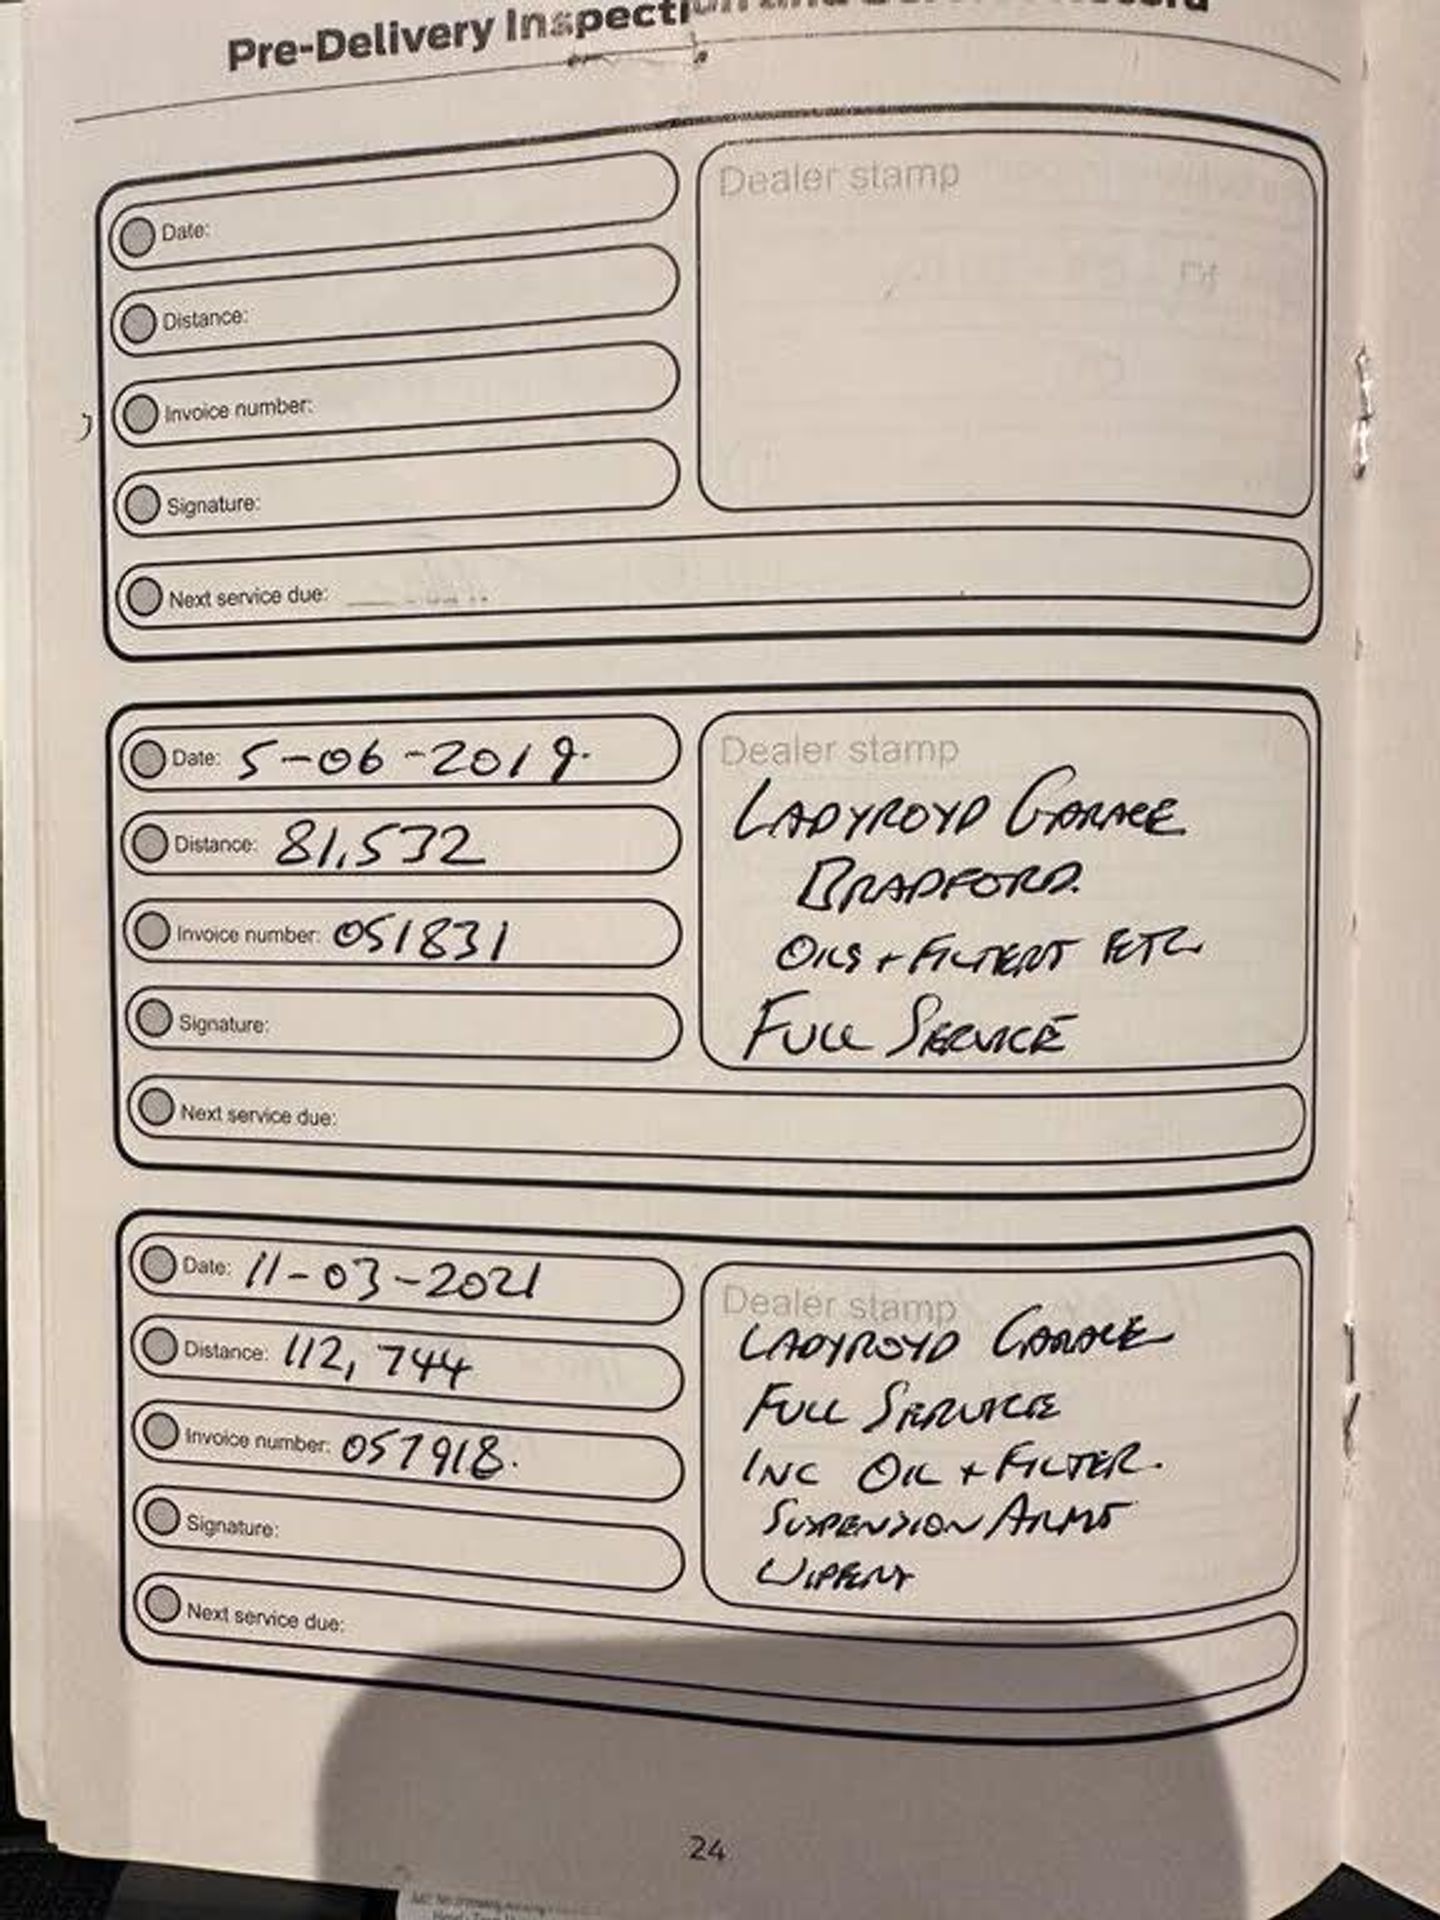 Pre-Delivery Inspection and Service Record
Dealer stamp
Date:
Distance:
Invoice number:
Signature:
Next service due:
Date: 5-06-2019.
Distance: 81,532
Invoice number: 051831
Signature:
Next service due:
Dealer stamp
LADYROYD GARAGE
BRADFORD.
OILS + FILTERS ETC
FULL SERVICE
Date: 11-03-2021
Distance: 112,744
Invoice number: 057918.
Signature:
Next service due:
Dealer stamp
LADYROYD GARAGE
FULL SERVICE
INC OIL + FILTER.
SUSPENSION ARMS
WIPERS
24